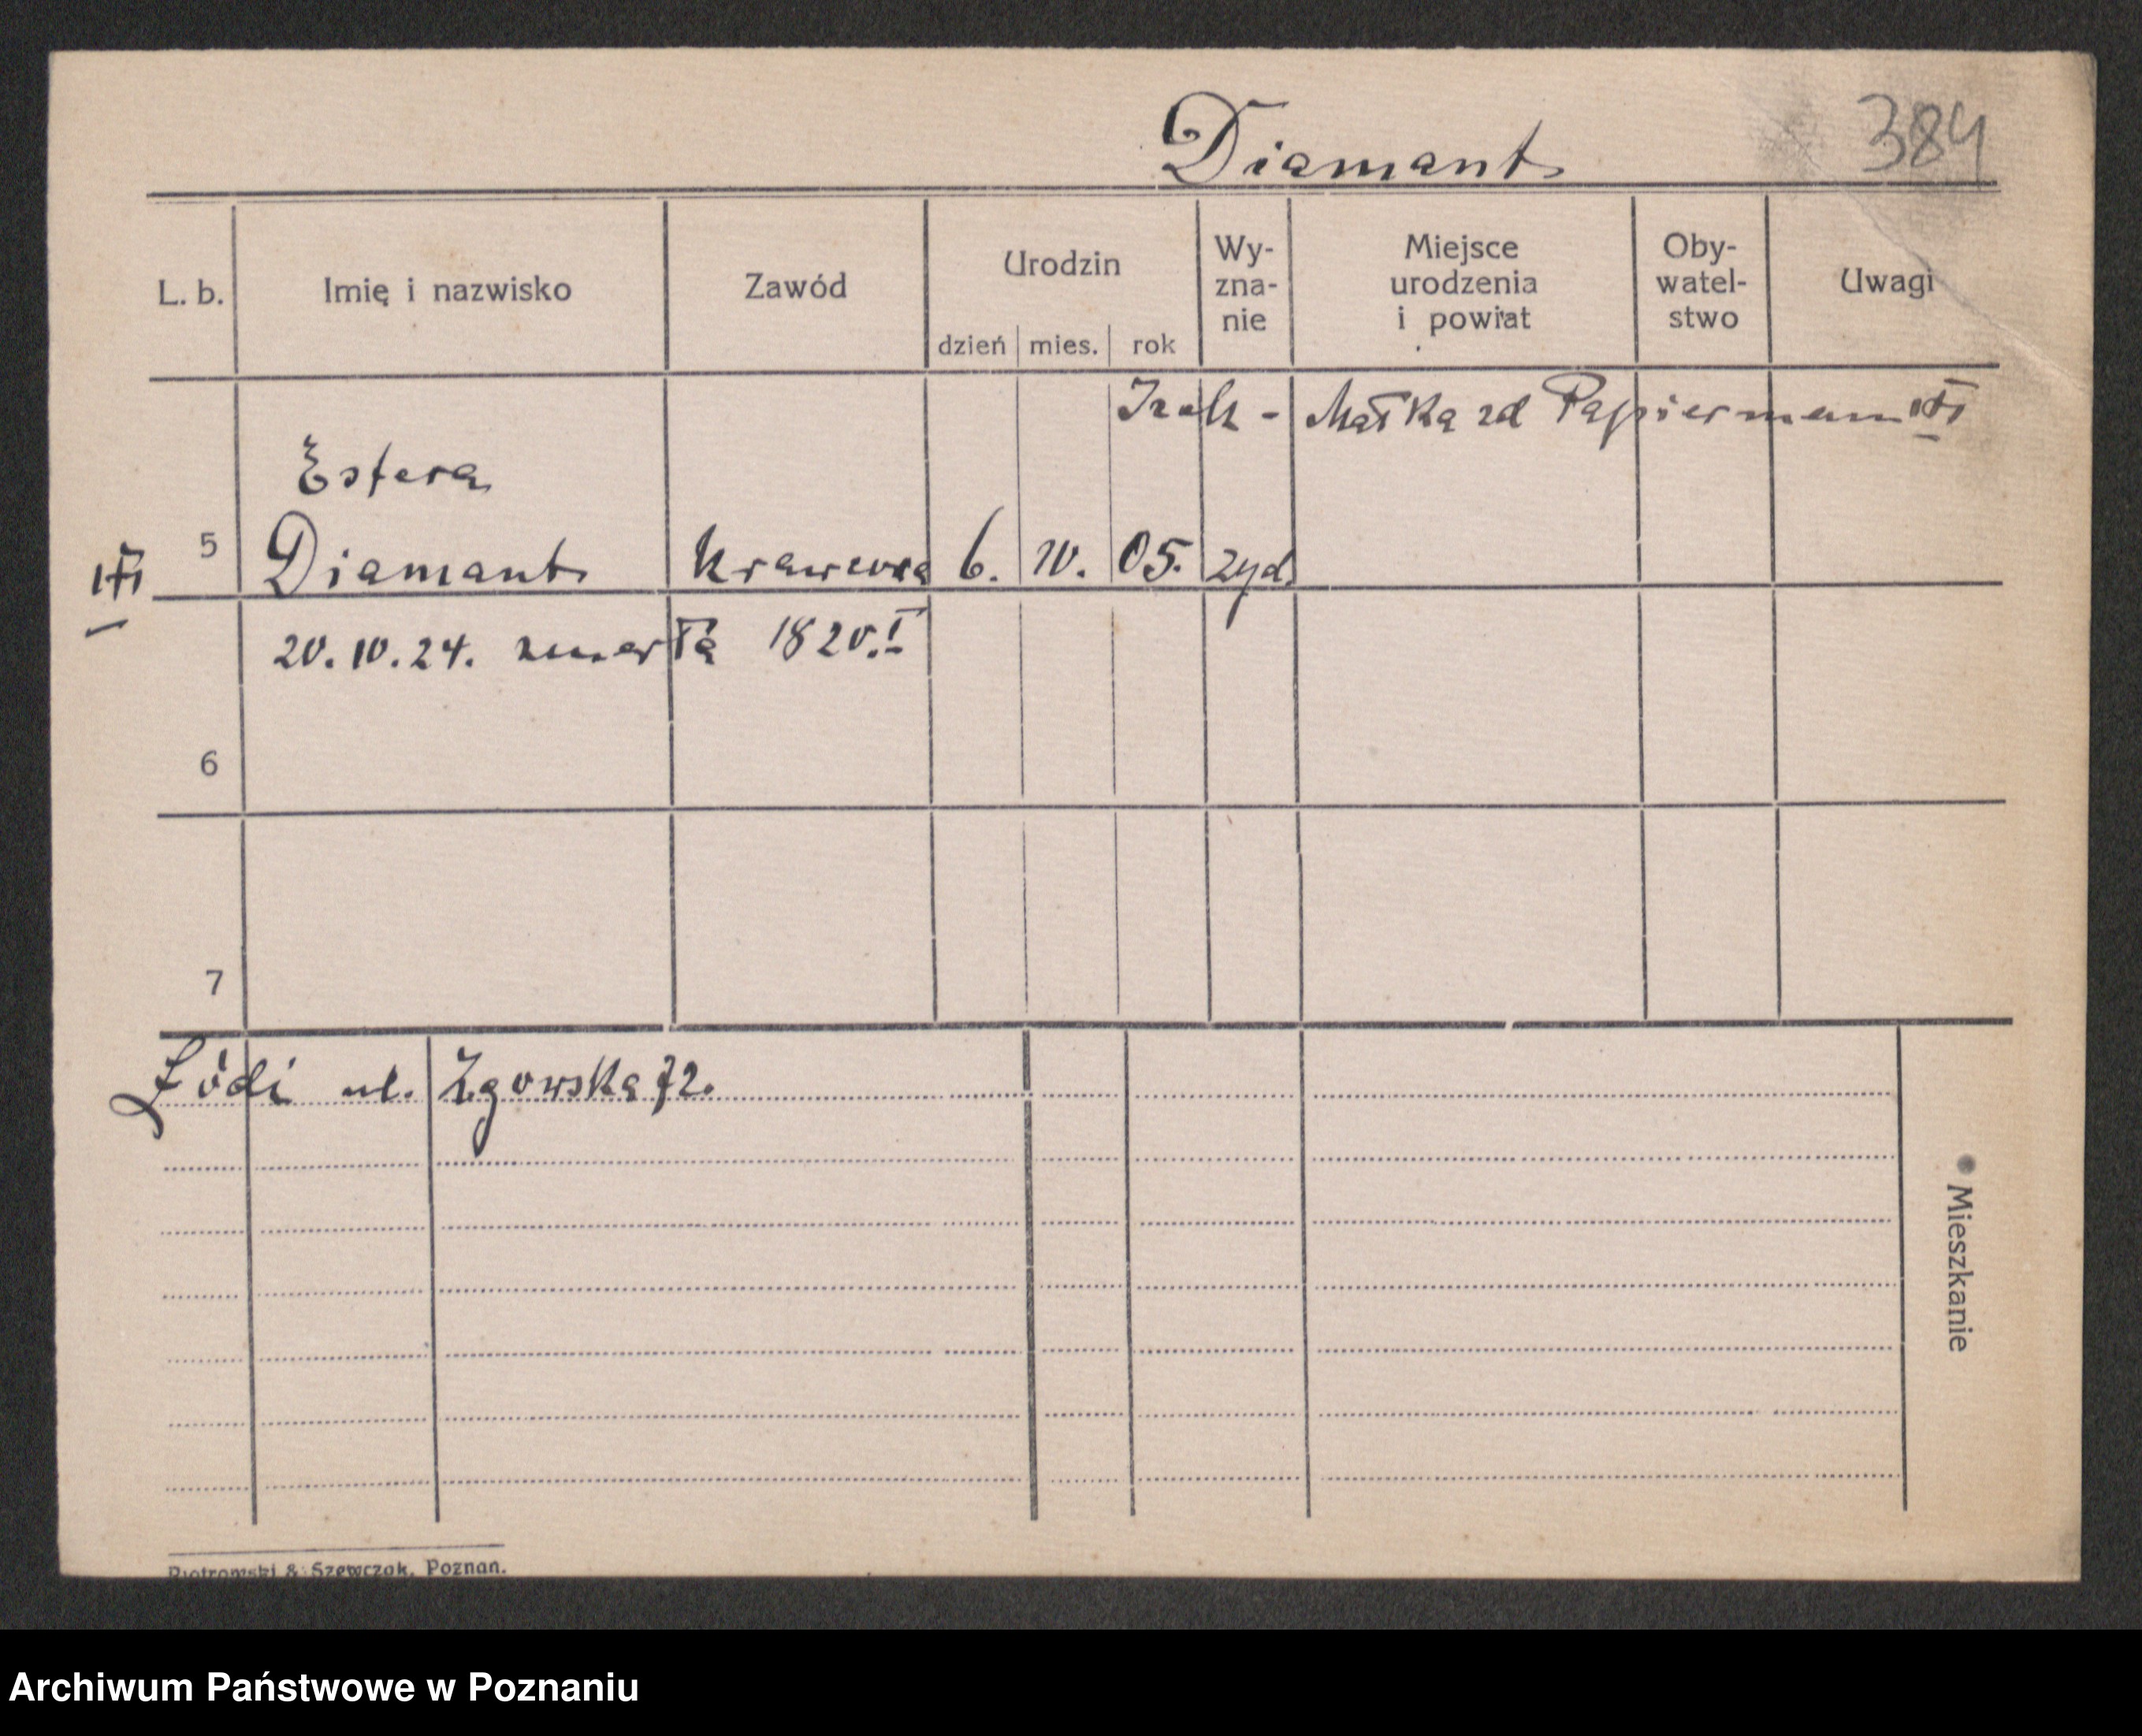 Diamant 384
L. b. Imię i nazwisko Zawód Urodzin dzień mies. rok Wy-zna-nie Miejsce urodzenia i powiat Oby-watel-stwo Uwagi
Matka zd Papierman
Estera
5 Diamant Krawcowa 6. 10. 05. żyd.
20.10.24. zmarła 1820.I
6
7
Łódź ul. Zgowska 72.
Mieszkanie
Piotrowski & Szewczak, Poznań.
Archiwum Państwowe w Poznaniu